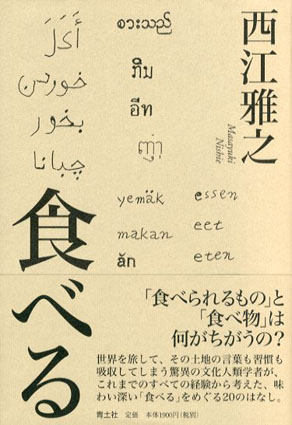 西江雅之
Masayuki
Nishie
أَكَلَ
خوردن
بخور
چبانا
စားသည်
yemäk
makan
ăn
essen
eet
eten
食べる
「食べられるもの」と
「食べ物」は
何がちがうの？
世界を旅して、その土地の言葉も習慣も
吸収してしまう驚異の文化人類学者が、
これまでのすべての経験から考えた、味
わい深い「食べる」をめぐる20のはなし。
青土社 定価 本体1900円(税別)